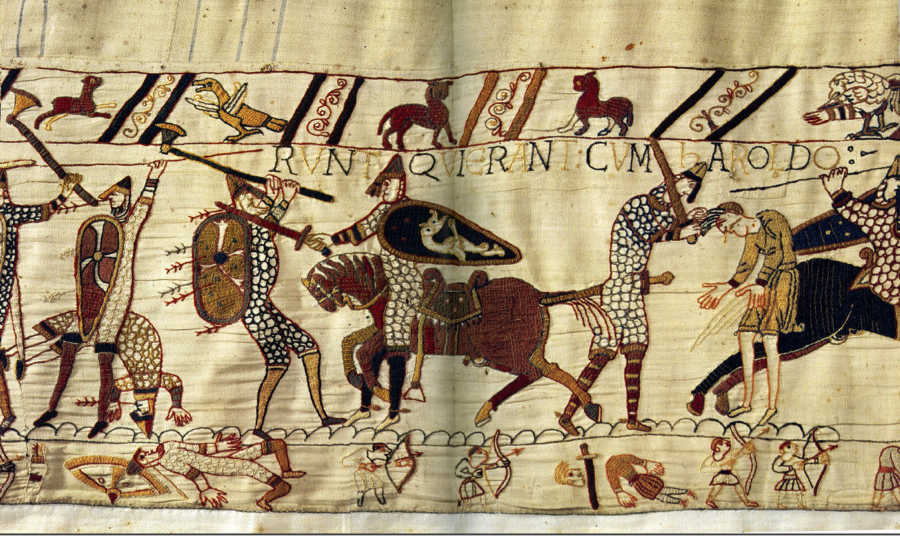 RVNT QVI ERANT : CVM hAROLDO :-